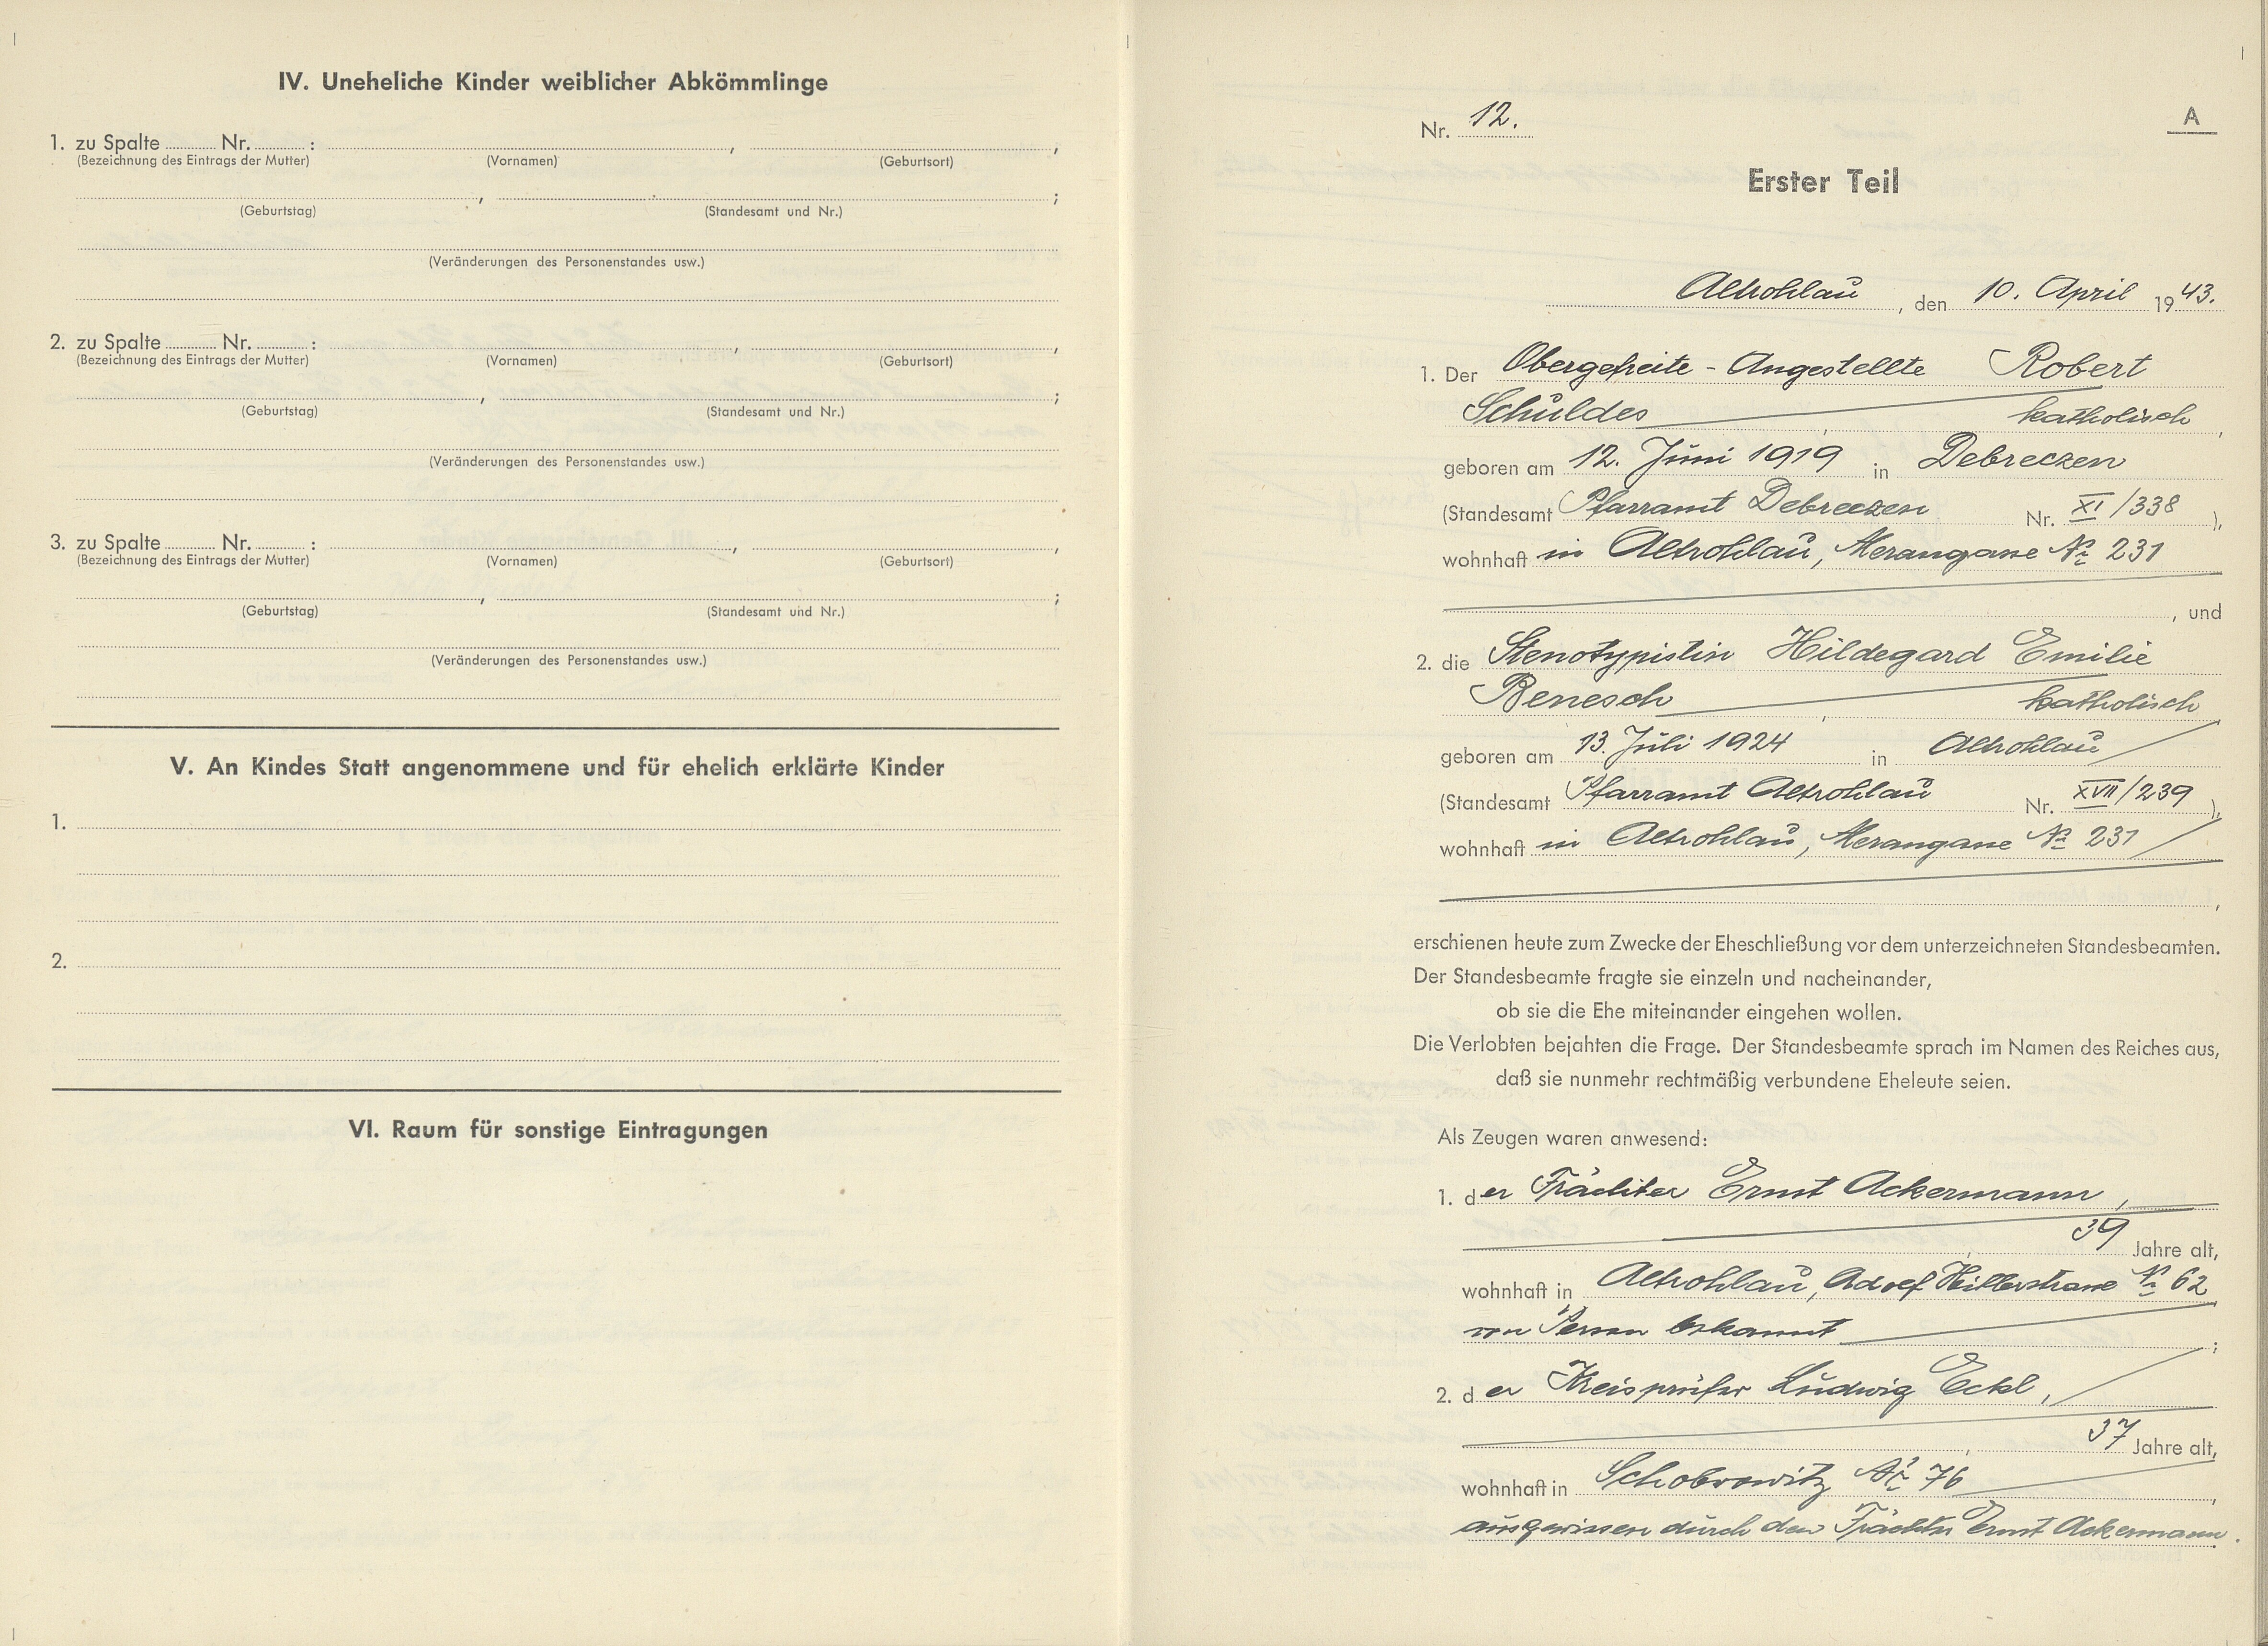 IV. Uneheliche Kinder weiblicher Abkömmlinge
1. zu Spalte Nr. : , ,
(Bezeichnung des Eintrags der Mutter) (Vornamen) (Geburtsort)
, ;
(Geburtstag) (Standesamt und Nr.)
(Veränderungen des Personenstandes usw.)
2. zu Spalte Nr. : , ,
(Bezeichnung des Eintrags der Mutter) (Vornamen) (Geburtsort)
, ;
(Geburtstag) (Standesamt und Nr.)
(Veränderungen des Personenstandes usw.)
3. zu Spalte Nr. : , ,
(Bezeichnung des Eintrags der Mutter) (Vornamen) (Geburtsort)
, ;
(Geburtstag) (Standesamt und Nr.)
(Veränderungen des Personenstandes usw.)
V. An Kindes Statt angenommene und für ehelich erklärte Kinder
1.
2.
VI. Raum für sonstige Eintragungen
Nr. 12. A
Erster Teil
Altrohlau, den 10. April 1943.
1. Der Obergefreite - Angestellte Robert
Schuldes katholisch,
geboren am 12. Juni 1919 in Debreczen
(Standesamt Pfarramt Debreczen Nr. XI/338),
wohnhaft in Altrohlau, Merangasse № 231
, und
2. die Stenotypistin Hildegard Emilie
Benesch katholisch,
geboren am 13. Juli 1924 in Altrohlau
(Standesamt Pfarramt Altrohlau Nr. XVII/239),
wohnhaft in Altrohlau, Merangasse № 231
,
erschienen heute zum Zwecke der Eheschließung vor dem unterzeichneten Standesbeamten.
Der Standesbeamte fragte sie einzeln und nacheinander,
ob sie die Ehe miteinander eingehen wollen.
Die Verlobten bejahten die Frage. Der Standesbeamte sprach im Namen des Reiches aus,
daß sie nunmehr rechtmäßig verbundene Eheleute seien.
Als Zeugen waren anwesend:
1. der Frächter Ernst Ackermann,
39 Jahre alt,
wohnhaft in Altrohlau, Adolf Hitlerstrasse № 62
von Person bekannt ;
2. der Kreisprüfer Ludwig Eckl,
37 Jahre alt,
wohnhaft in Schobrowitz № 76 ,
ausgewiesen durch den Frächter Ernst Ackermann.